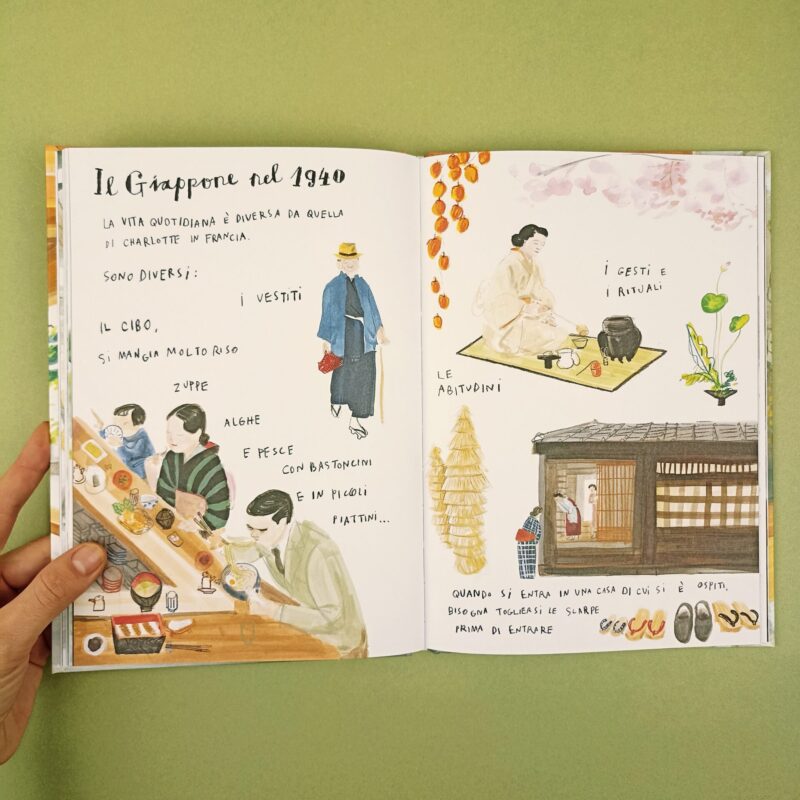 Il Giappone nel 1940
LA VITA QUOTIDIANA È DIVERSA DA QUELLA
DI CHARLOTTE IN FRANCIA.
SONO DIVERSI:
I VESTITI
IL CIBO,
SI MANGIA MOLTO RISO
ZUPPE
ALGHE
E PESCE
CON BASTONCINI
E IN PICCOLI
PIATTINI...
I GESTI E
I RITUALI
LE
ABITUDINI
QUANDO SI ENTRA IN UNA CASA DI CUI SI È OSPITI,
BISOGNA TOGLIERSI LE SCARPE
PRIMA DI ENTRARE